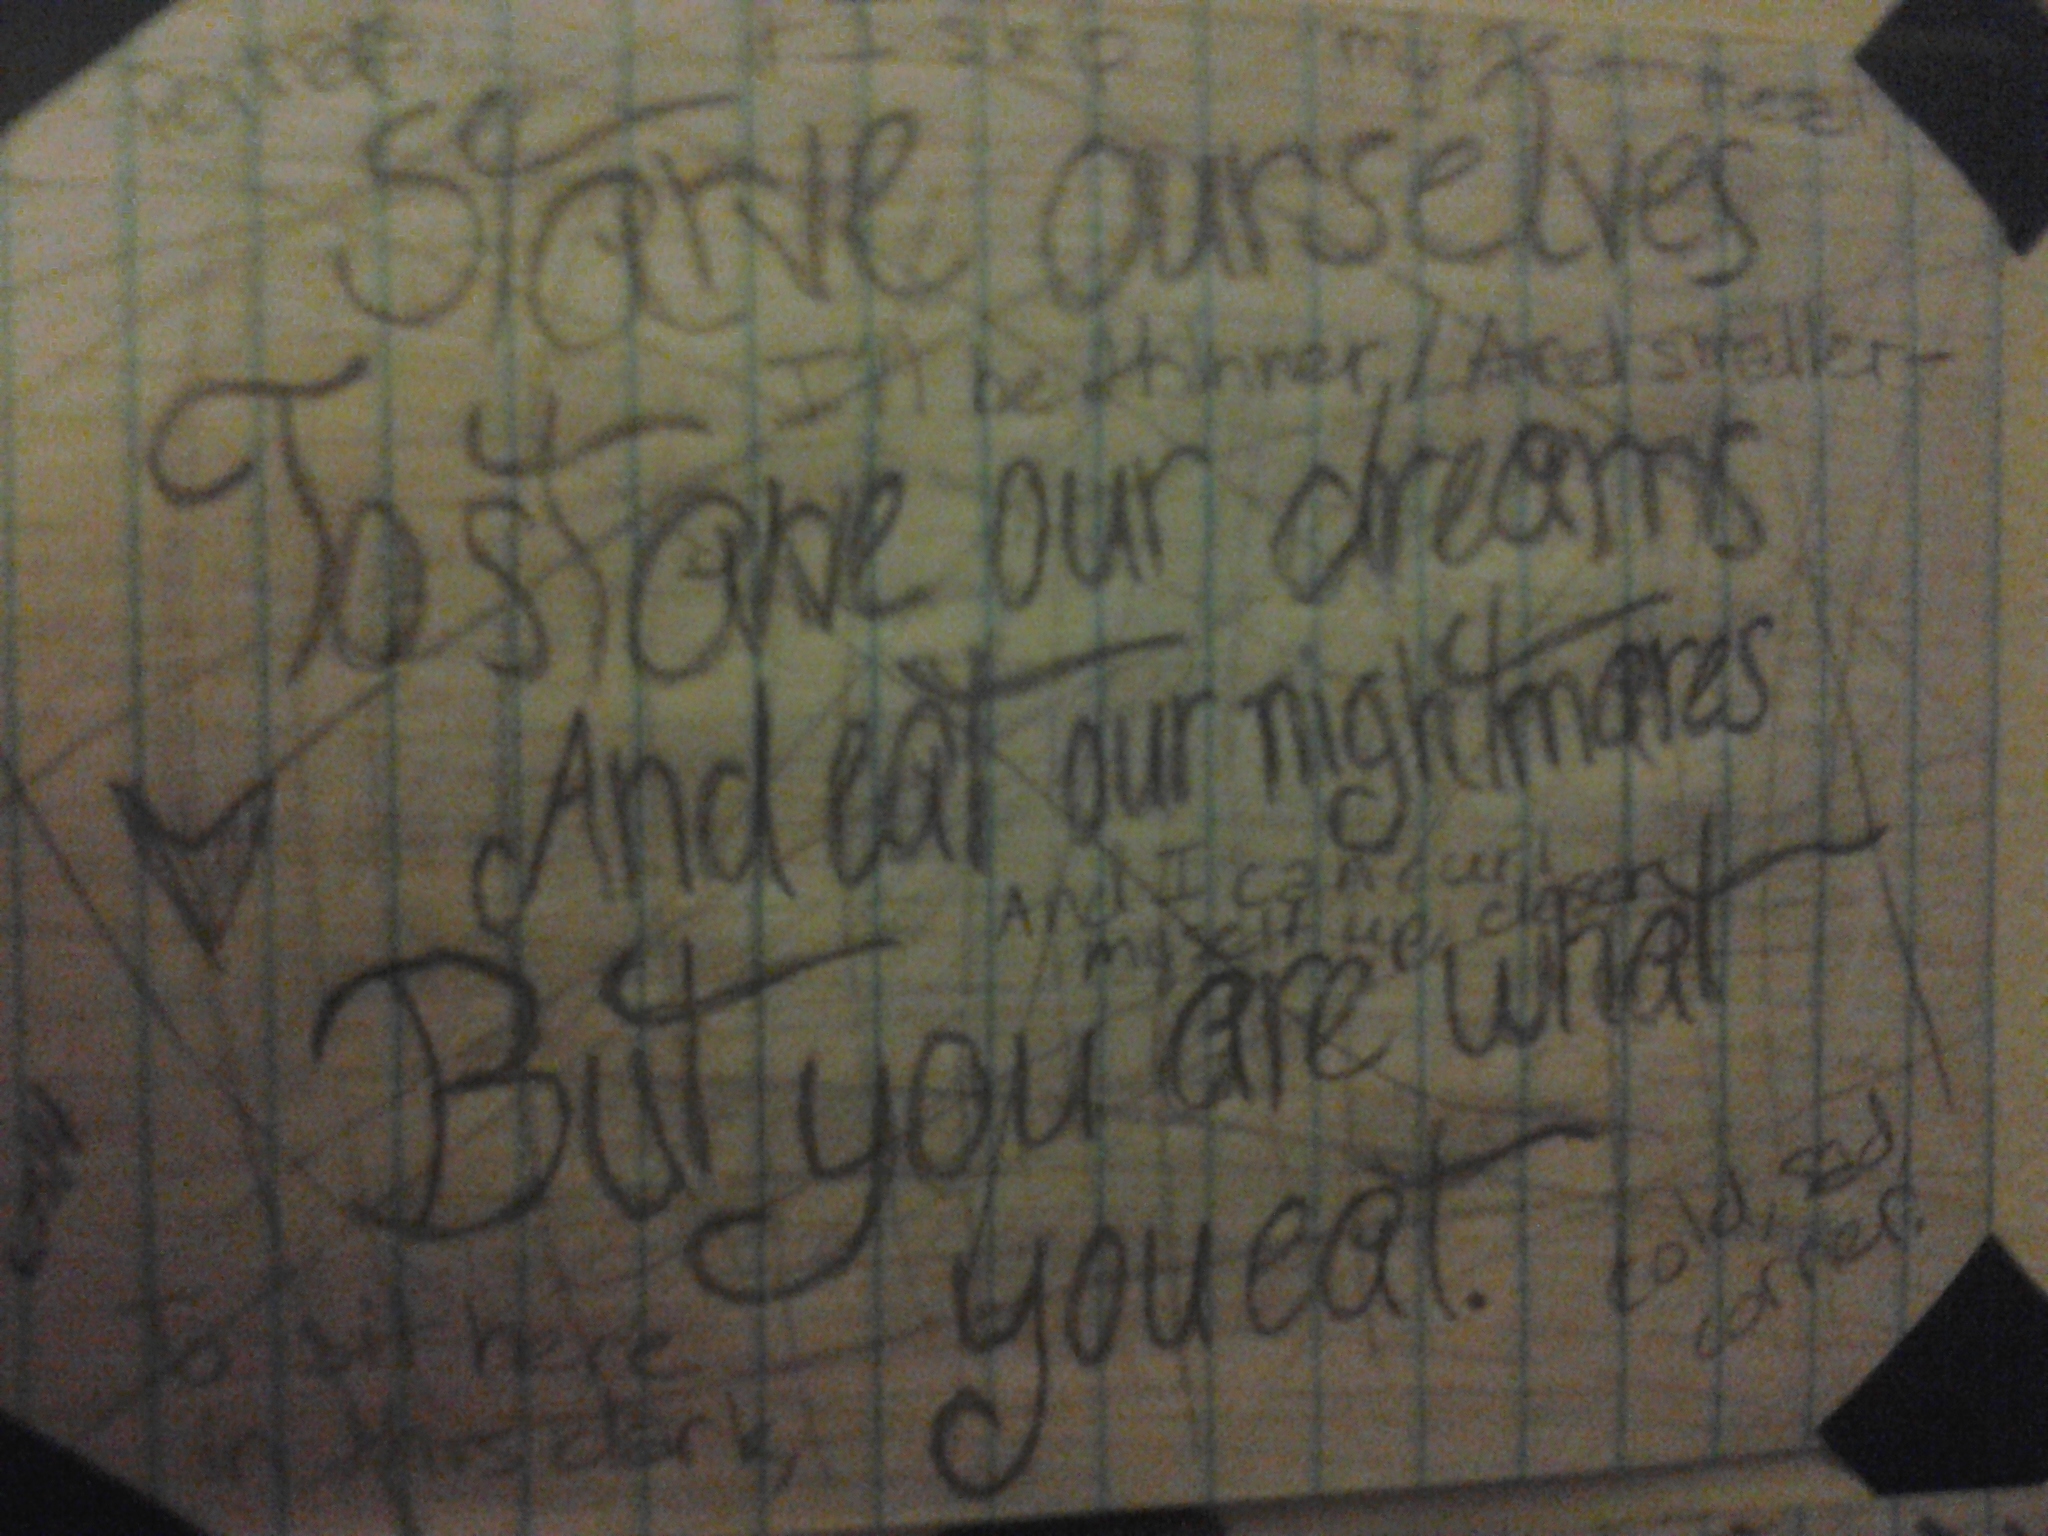 I skip my
Starve ourselves
I'll be thinner / And smaller-
To starve our dreams
And eat our nightmares
And I can curl
myself up, closer
But you are what
you eat.
cold, sad
corner.
To sit here
in this dark,